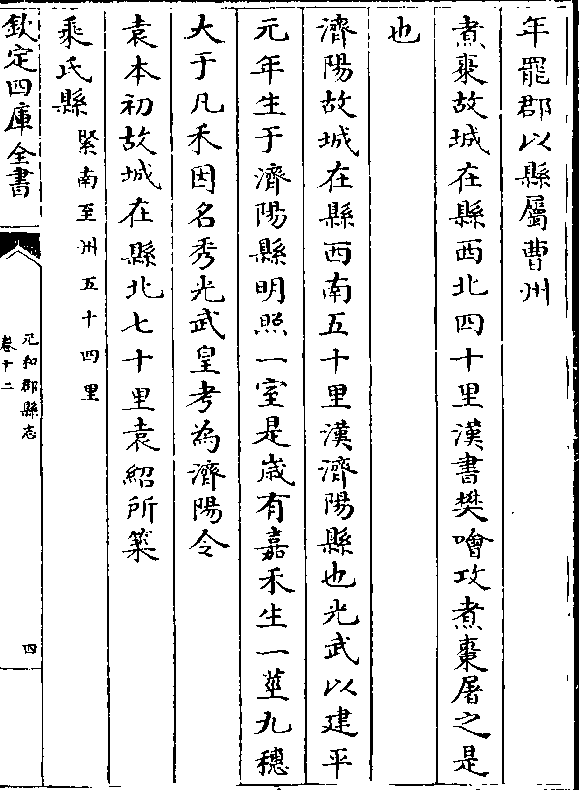 年罷郡以縣屬曹州
煮棗故城在縣西北四十里漢書樊噲攻煮棗屠之是
也
濟陽故城在縣西南五十里漢濟陽縣也光武以建平
元年生于濟陽縣明照一室是歲有嘉禾生一莖九穗
大于凡禾因名秀光武皇考為濟陽令
袁本初故城在縣北七十里袁紹所築
乘氏縣緊南至州五十四里
欽定四庫全書
元和郡縣志
卷十二
四